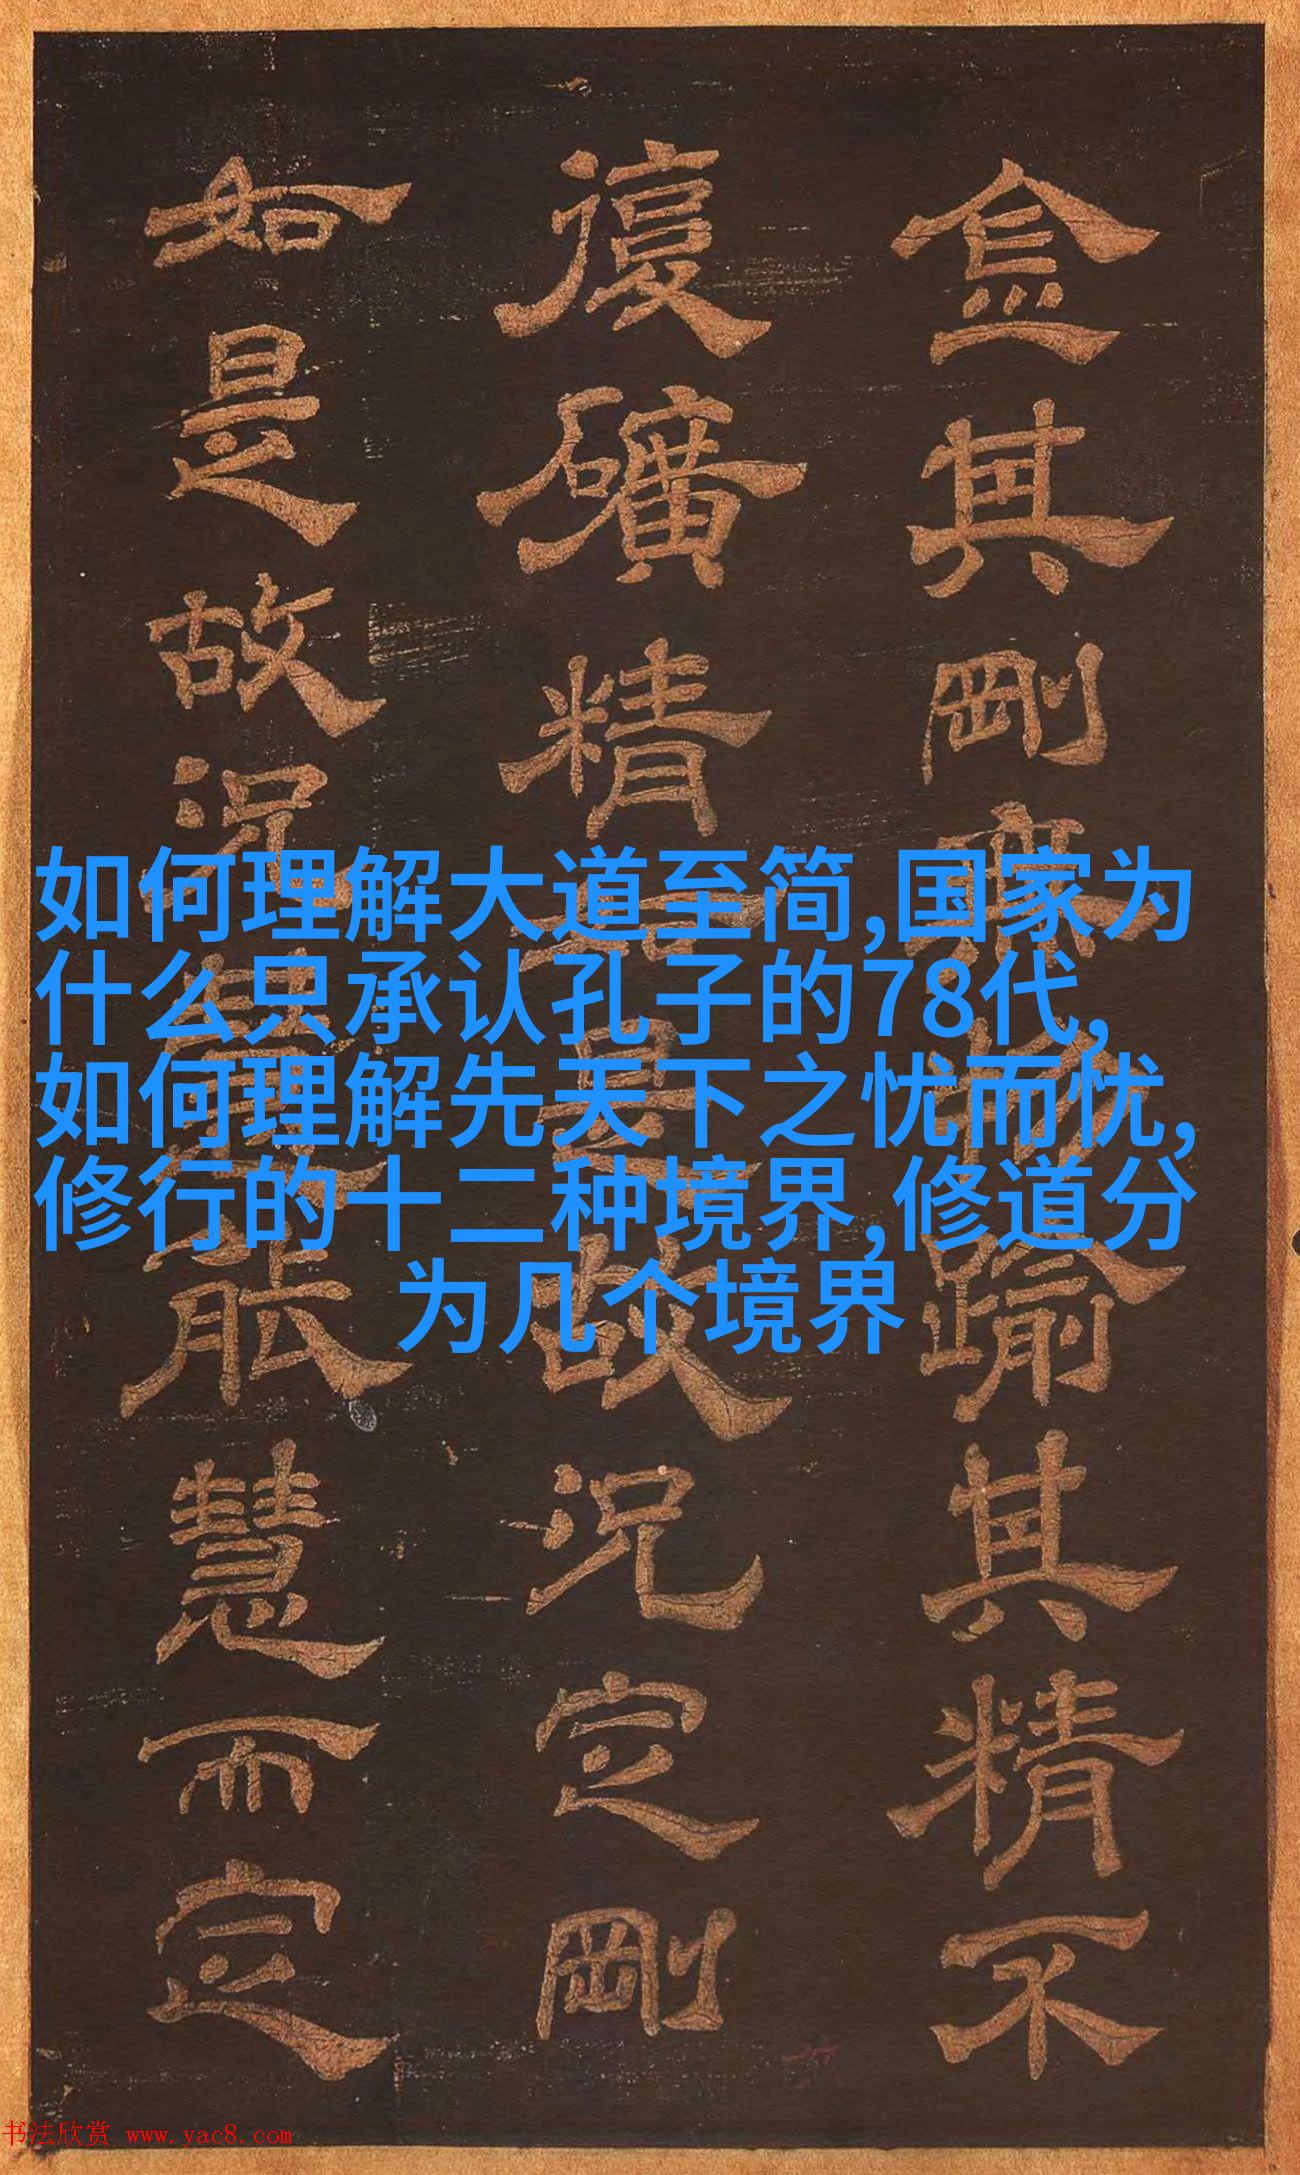 金其剛踰其精不
復礦精是故況定剛
如是故況能慧而定
如何理解大道至简,国家为
什么只承认孔子的78代,
如何理解先天下之忧而忧,
修行的十二种境界,修道分
为几个境界
书法欣赏 www.yac8.com